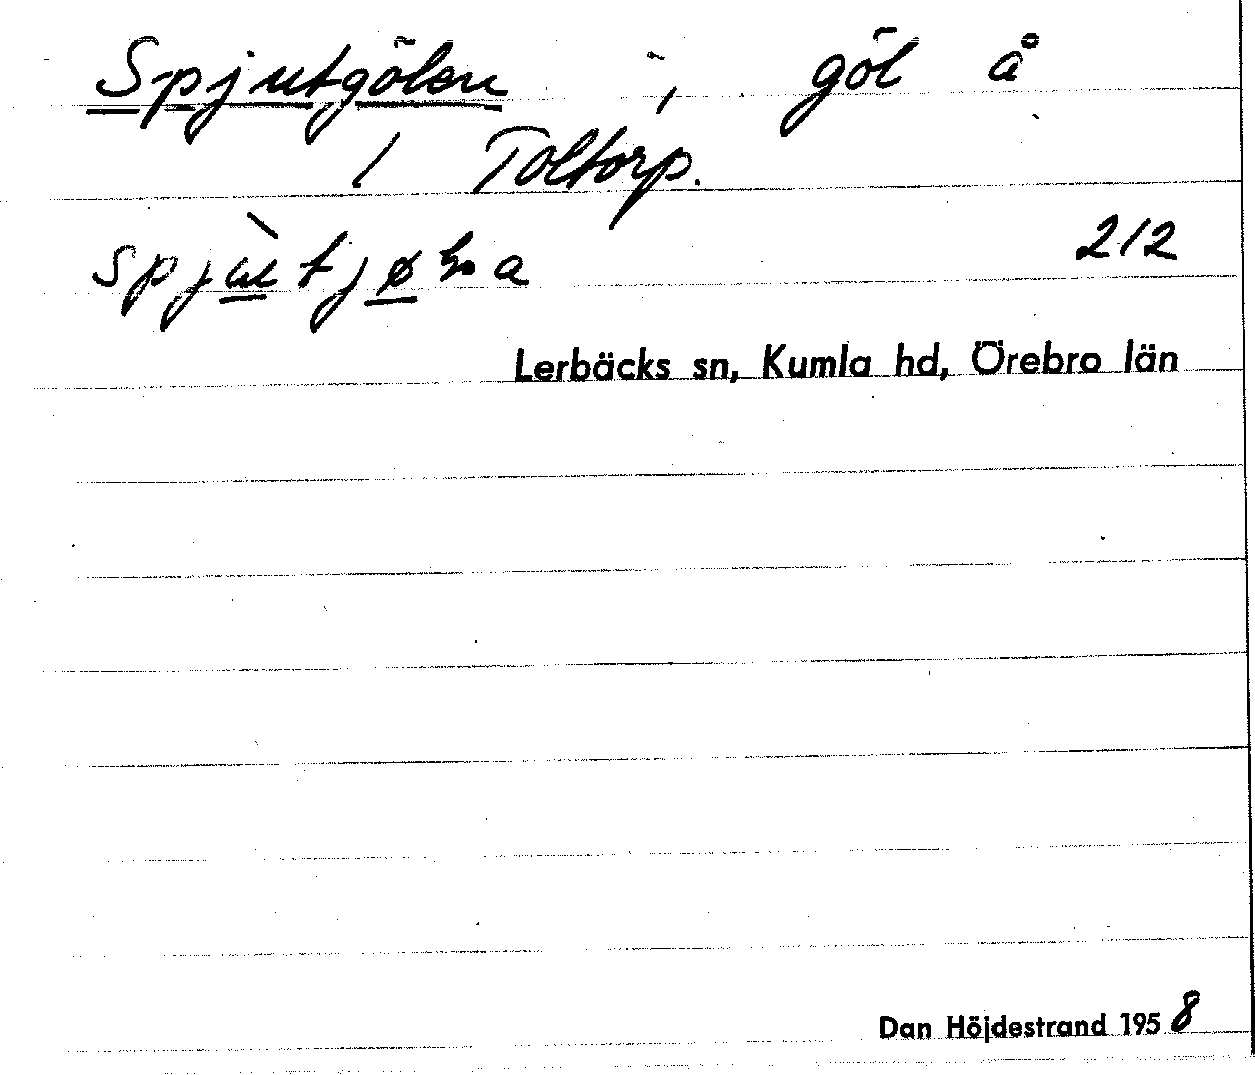 Spjutgölen , göl å
1 Toltorp.
212
Lerbäcks sn, Kumla hd, Örebro län
Dan Höjdestrand 1958